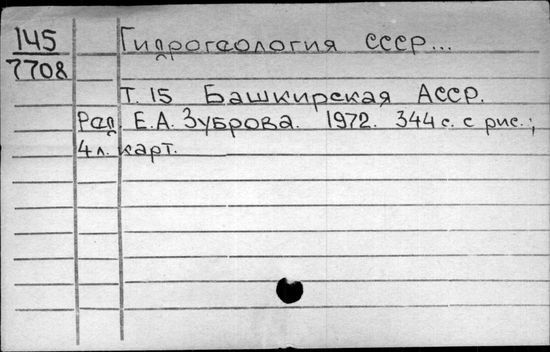 145 Гидрогеология СССР...
7708
Т. 15 Башкирская АССР.
Ред Е.А. Зуброва. 1972. 344 с. с рис.;
4 л. карт.